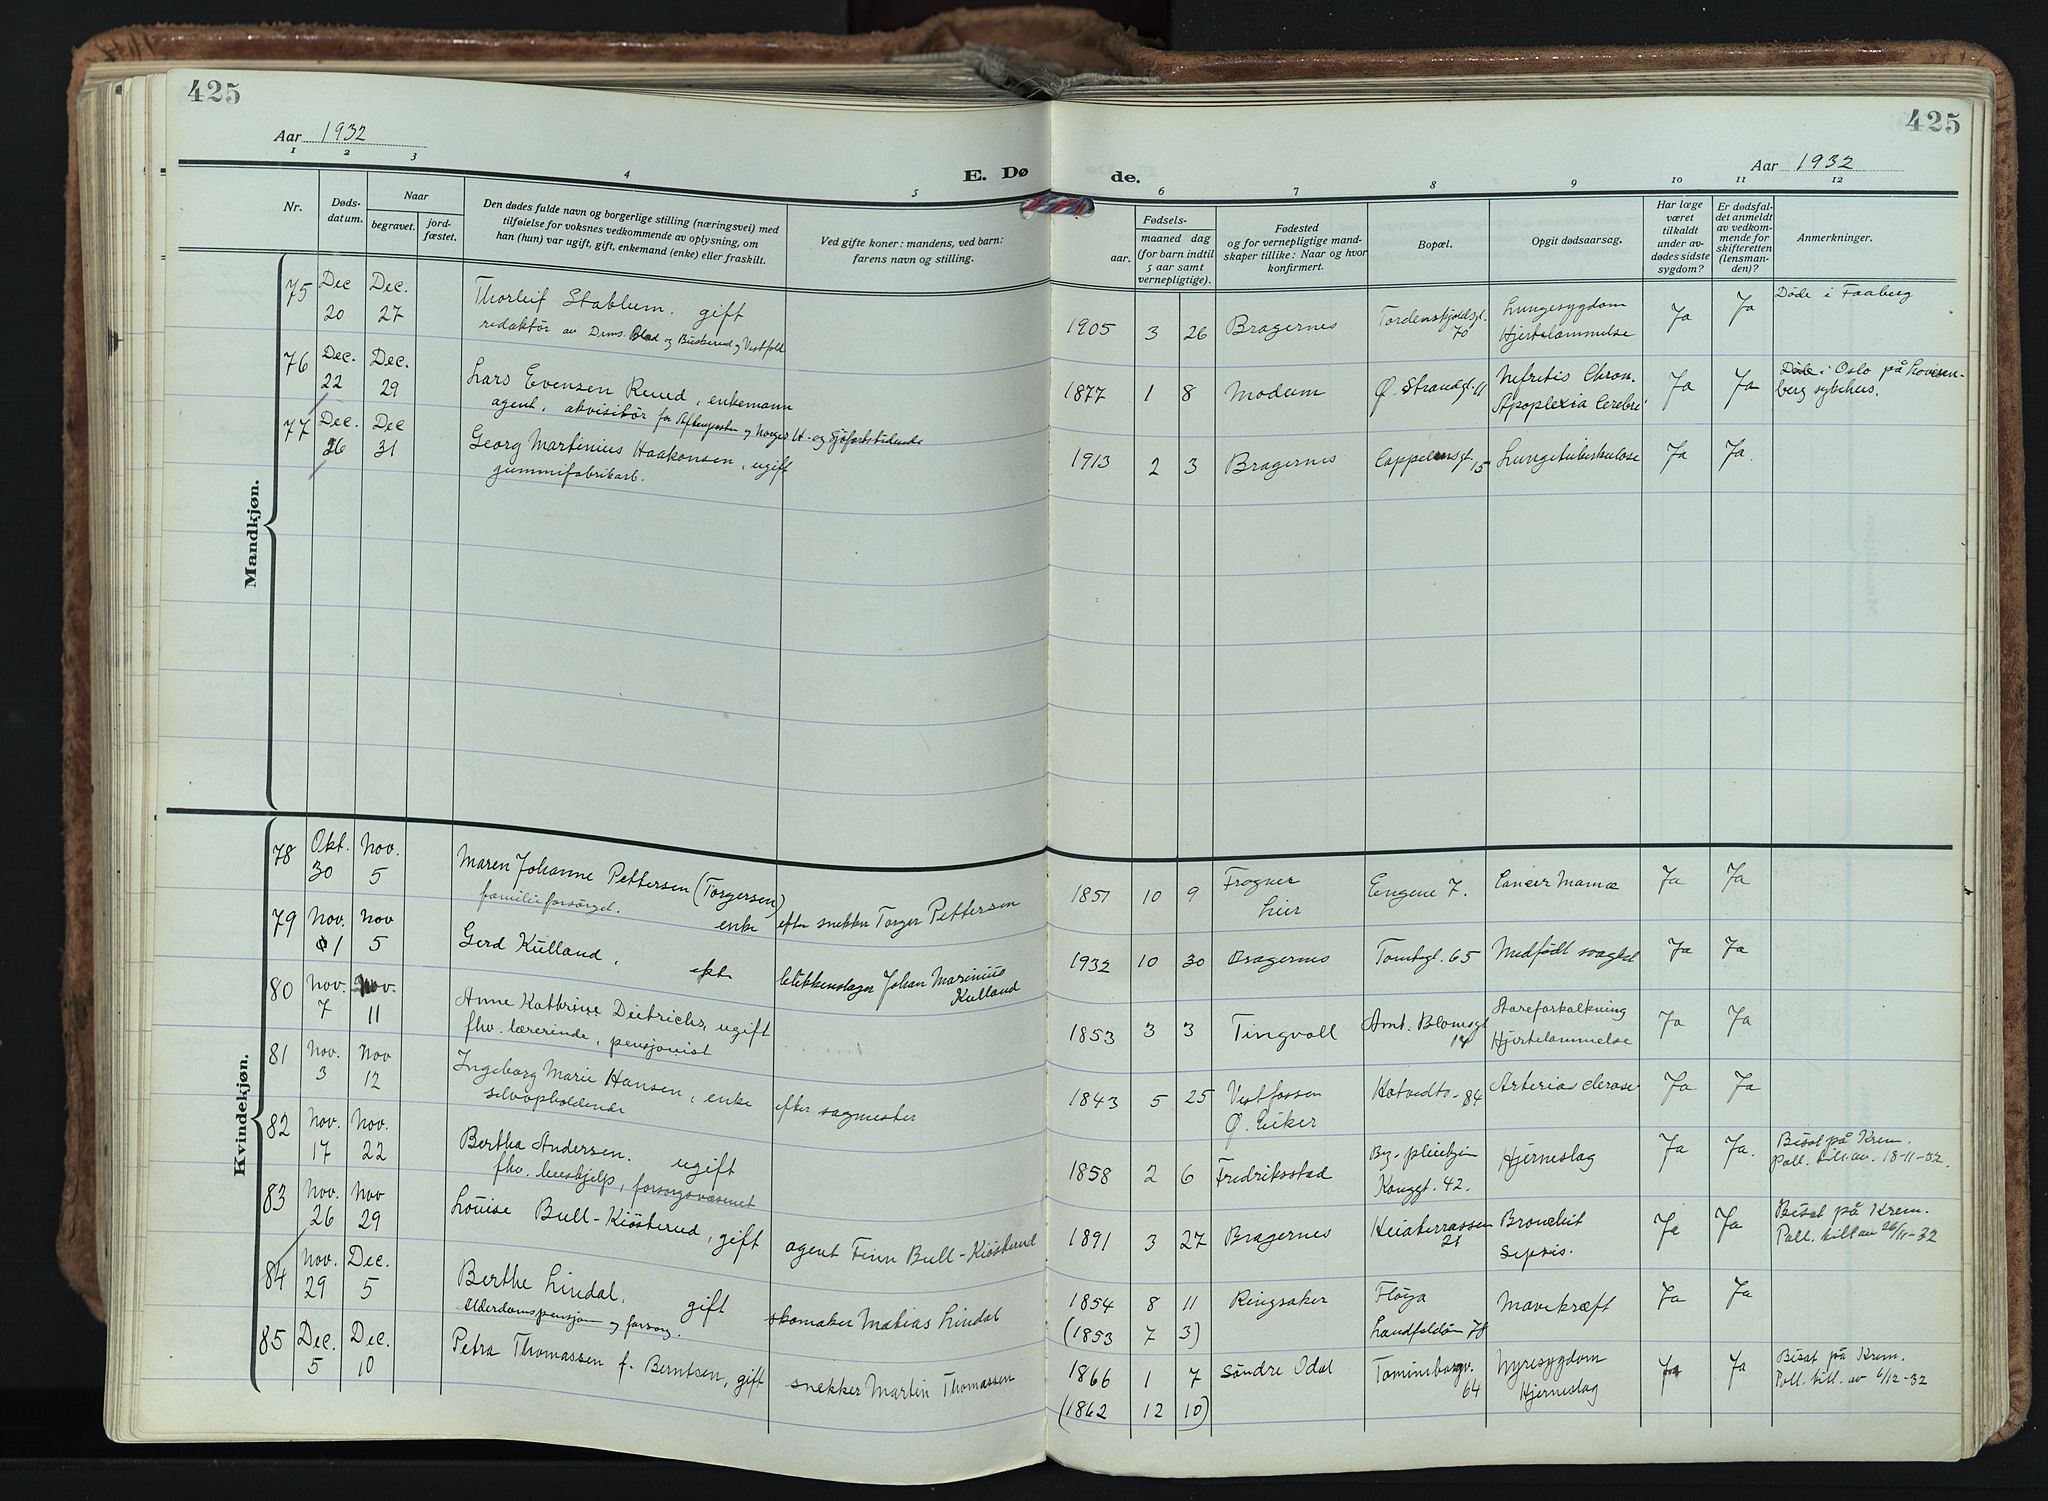 425
425
Aar 1932
Aar 1932
E. Dø de.
1 2 3 4 5 6 7 8 9 10 11 12
Nr.
Døds-
datum.
Naar
begravet.
jord-
fæstet.
Den dødes fulde navn og borgerlige stilling (næringsvei) med
tilføielse for voksnes vedkommende av oplysning, om
han (hun) var ugift, gift, enkemand (enke) eller fraskilt.
Ved gifte koner: mandens, ved barn:
farens navn og stilling.
Fødsels-
aar.
maaned dag
(for barn indtil
5 aar samt
vernepligtige).
Fødested
og for vernepligtige mand-
skaper tillike: Naar og hvor
konfirmert.
Bopæl.
Opgit dødsaarsag.
Har læge
været
tilkaldt
under av-
dødes sidste
sygdom?
Er dødsfal-
det anmeldt
av vedkom-
mende for
skifteretten
(lensman-
den)?
Anmerkninger.
Mandkjøn.
75 Dec Dec. Thorleif Stablum. gift Lungesygdom Døde i Faaberg
20 27 redaktør av Dms. Blad og Buskerud og Vestfold 1905 3 26 Bragernes Tordenskjoldsgt. 70 Hjertelammelse Ja Ja
76 Dec. Dec. Lars Evensen Ruud, enkemann Nefritis Chron. Døde i Oslo på Lovisen-
22 29 agent, akvisitør for Aftenposten og Norges H- og Sjöfartstidende 1877 1 8 Modum Ø. Strandgt. 11 Apoplexia Cerebri Ja Ja berg sykehus.
77 Dec. Dec Georg Martinius Haakonsen, ugift
26 31 gummifabrikarb. 1913 2 3 Bragernes Cappelensgt. 15 Lungetuberkulose Ja Ja.
Kvindekjøn.
78 Okt. Nov. Maren Johanne Pettersen (Torgersen) Frogner
30 5 familieforsørget. enke efter snekker Torger Pettersen 1851 10 9 Lier Engene 7. Cancer Mamæ Ja Ja
79 Nov. Nov Gerd Kulland, ekte blikkenslager Johan Marinius
1 5 Kulland 1932 10 30 Bragernes Tomtegt. 65 Medfödt svaghet Ja Ja
80 Nov. Nov. Anne Kathrine Dietrichs, ugift Aareforkalkning
7 11 fhv. lærerinde, pensjonist 1853 3 3 Tingvoll Amt. Blomsgt 14 Hjertelammelse Ja Ja
81 Nov. Nov Ingeborg Marie Hansen, enke efter sagmester
3 12 selvopholdende 1843 5 25 Vestfossen Ø. Eiker 84 Ja Ja
82 Nov. Nov. Bertha Andersen. ugift Bisat på Krem.
17 22 fhv. hushjelp, forsorgsvæsenet 1858 2 6 Fredriksstad By. pleiehjem Konggt. 42. Hjerneslag Ja Ja. Poll. till av. 18-11-32.
83 Nov. Nov Louise Bull-Kiösterud, gift agent Finn Bull-Kiösterud Bisat på Krem.
26 29 1891 3 27 Bragernes Heiaterrassen 21 Bronchit Sepsis. Ja Ja Poll. till av 26/11-32
84 Nov. Dec. Berthe Lindal, gift skomaker Matias Lindal
29 5 Alderdomspensjon og forsorg. 1854 8 11 Ringsaker Fløya Mavekræft Ja Ja
(1853 7 3) Landfaldøn 78
85 Dec. Dec. Petra Thomassen f. Berntsen, gift snekker Martin Thomassen
5 10 1866 1 7 Söndre Odal 64 Nyresygdom Hjerneslag Ja Ja Bisat på Krem. Poll. till. av 6/12-32
(1862 12 10)